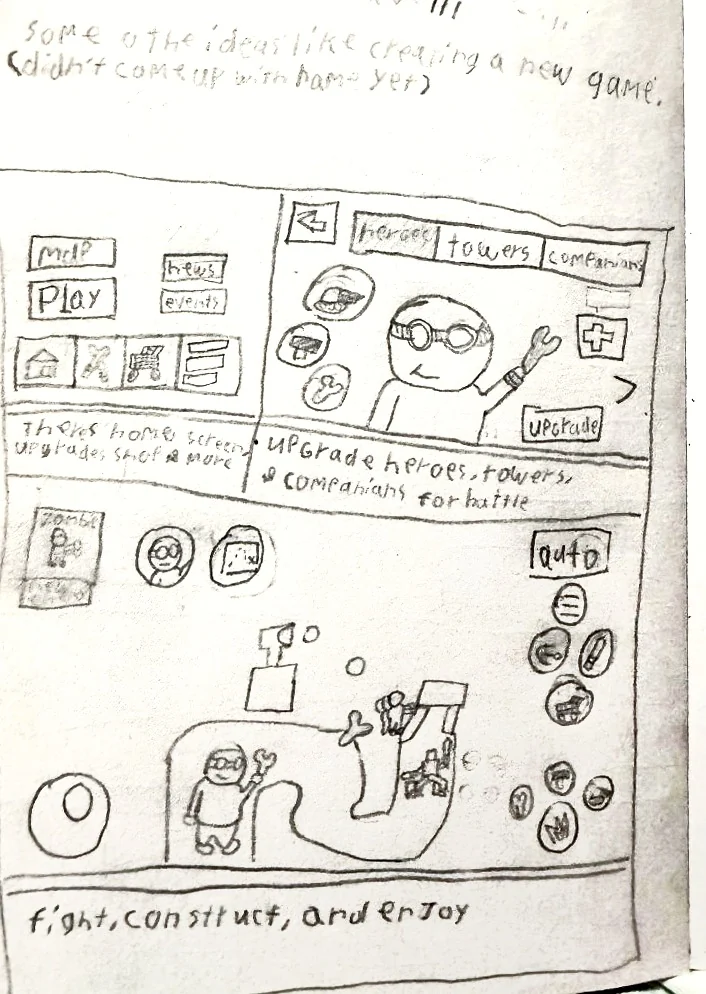 some o the ideas like creating a new game.
(didn't come up with name yet)
map
Play
news
events
heroes
towers
companians
upgrade
Theres home screen,
upgrades shop & more
upgrade heroes, towers,
& companians for battle
zombie
auto
fight, construct, and enjoy